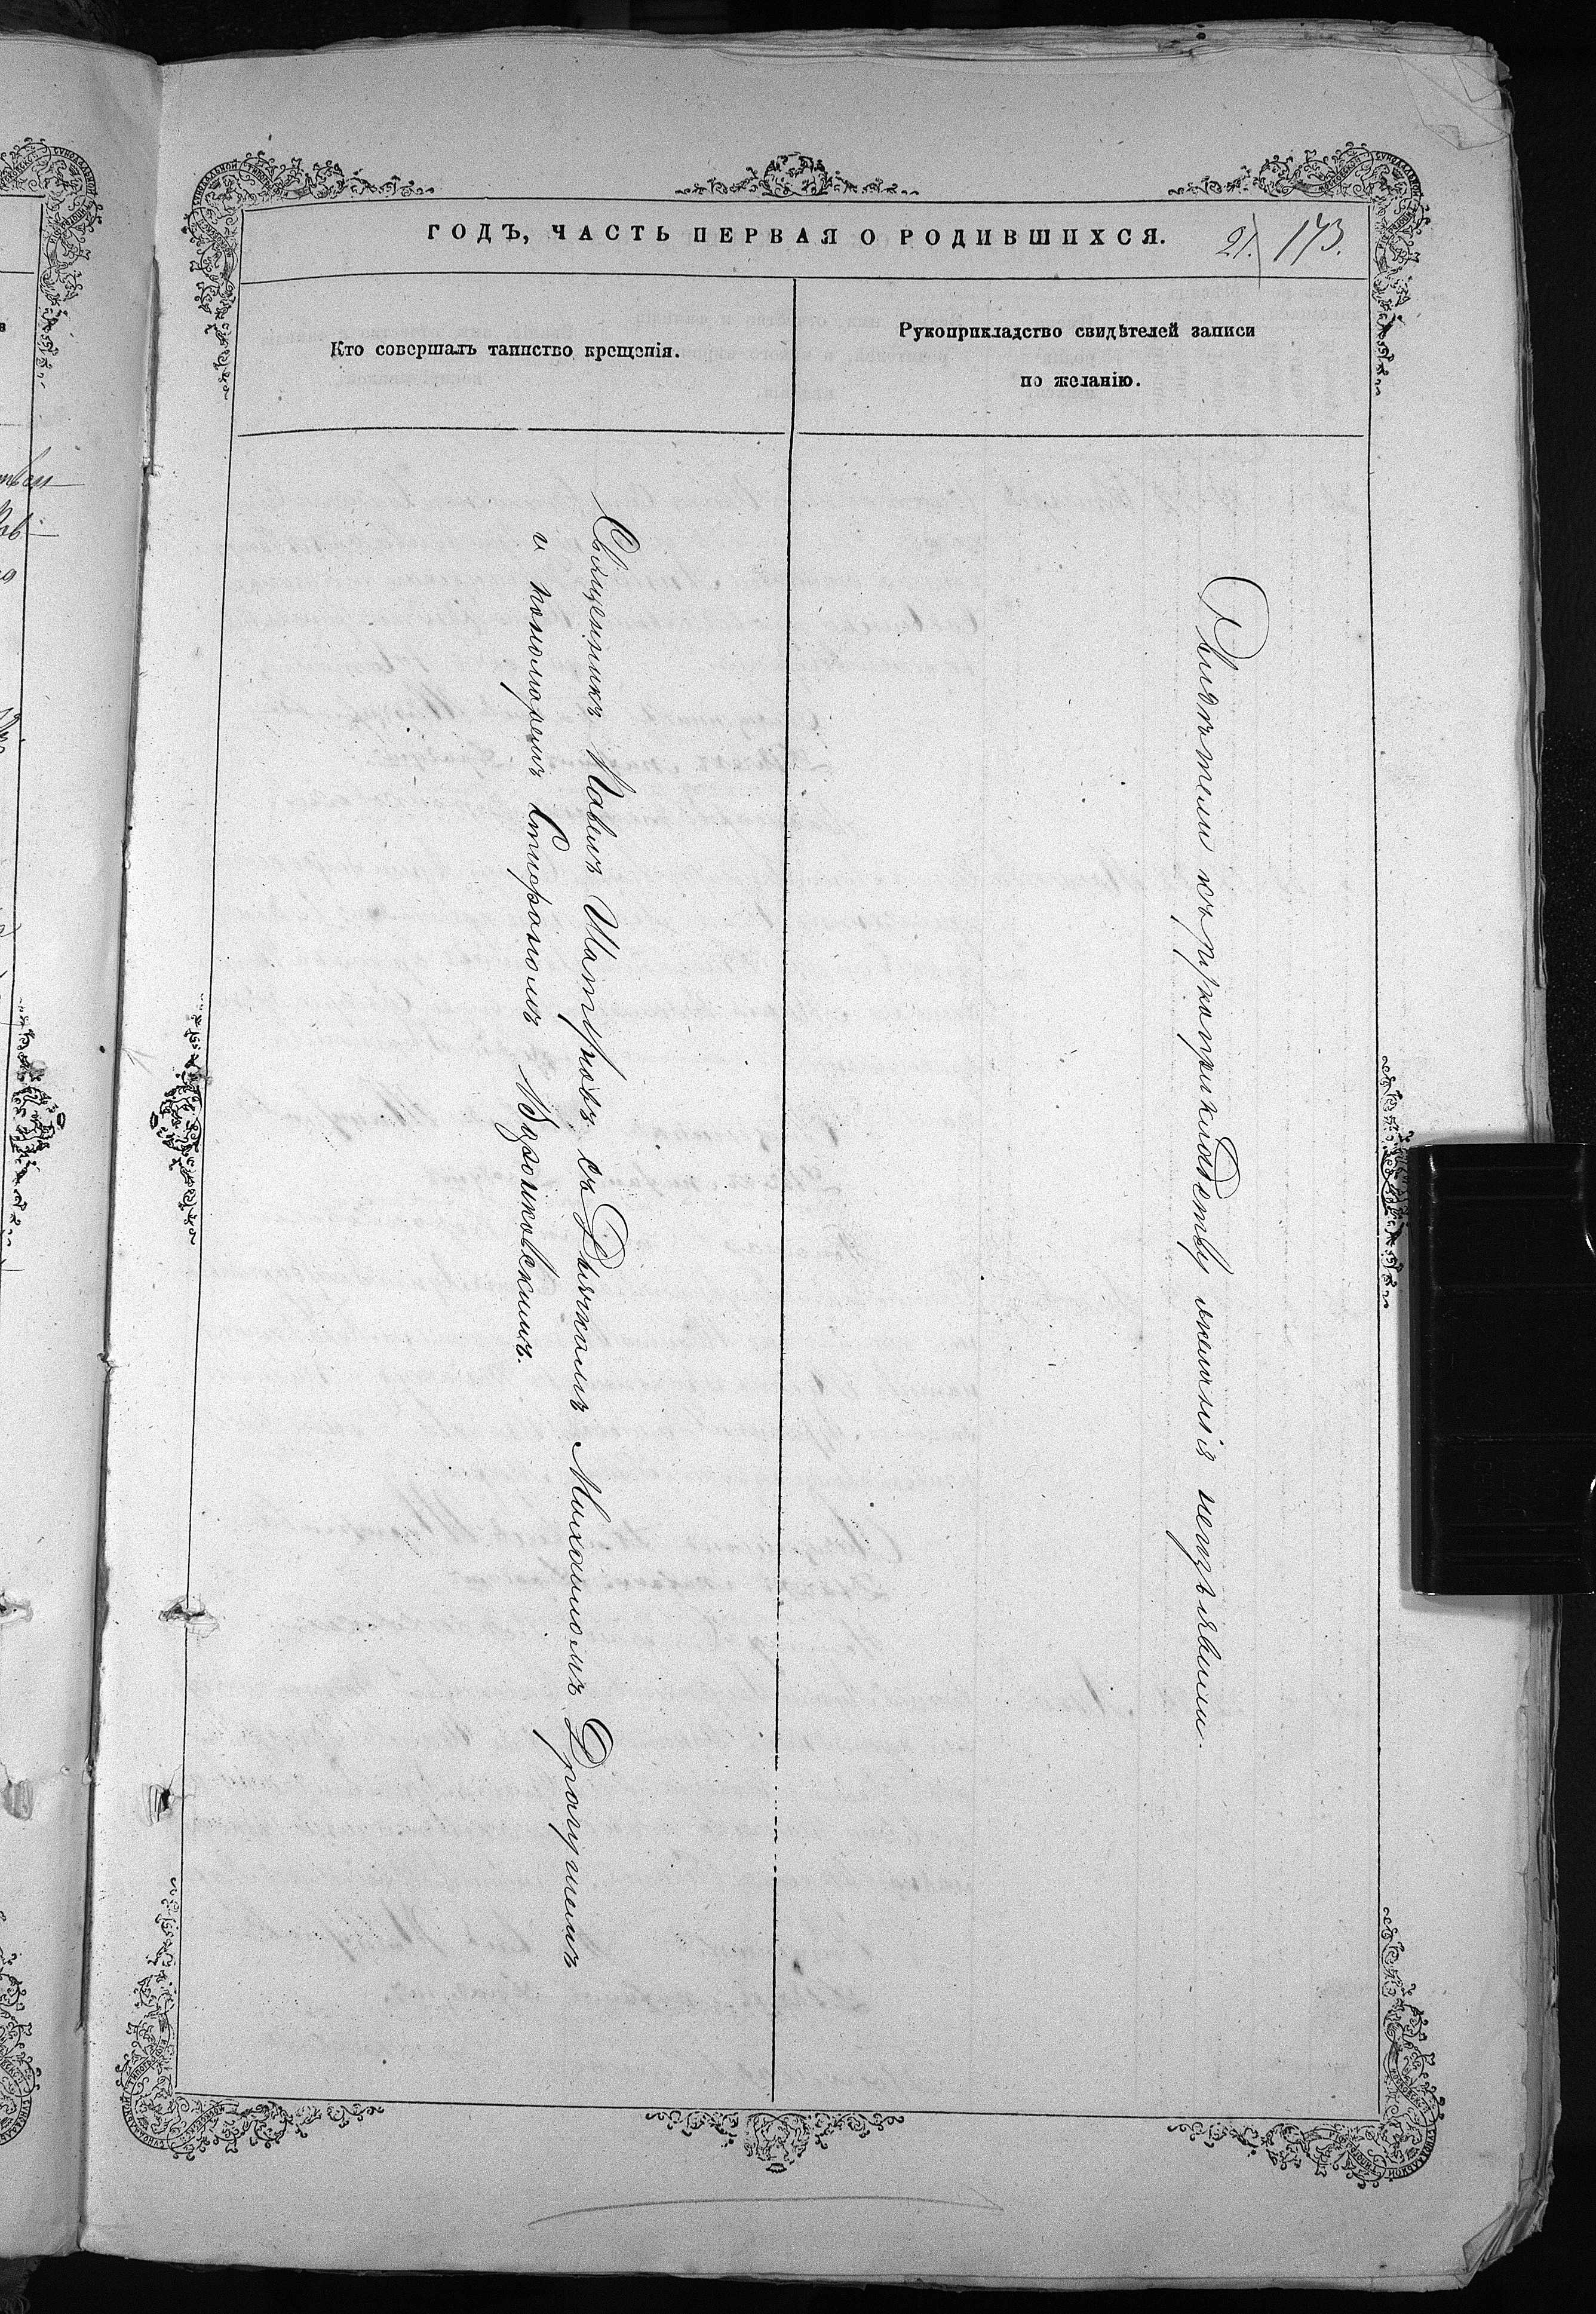 ГОДЪ, ЧАСТЬ ПЕРВАЯ О РОДИВШИХСЯ.
21. 173.
Кто совершалъ таинство крещенія.
Рукоприкладство свидѣтелей записи
по желанію.
Священникъ Павелъ Шатуновъ съ Дьячкомъ Михаиломъ
и пономаремъ Стефаномъ
Свидѣтели къ рукоприкладству желанія неизъявили.